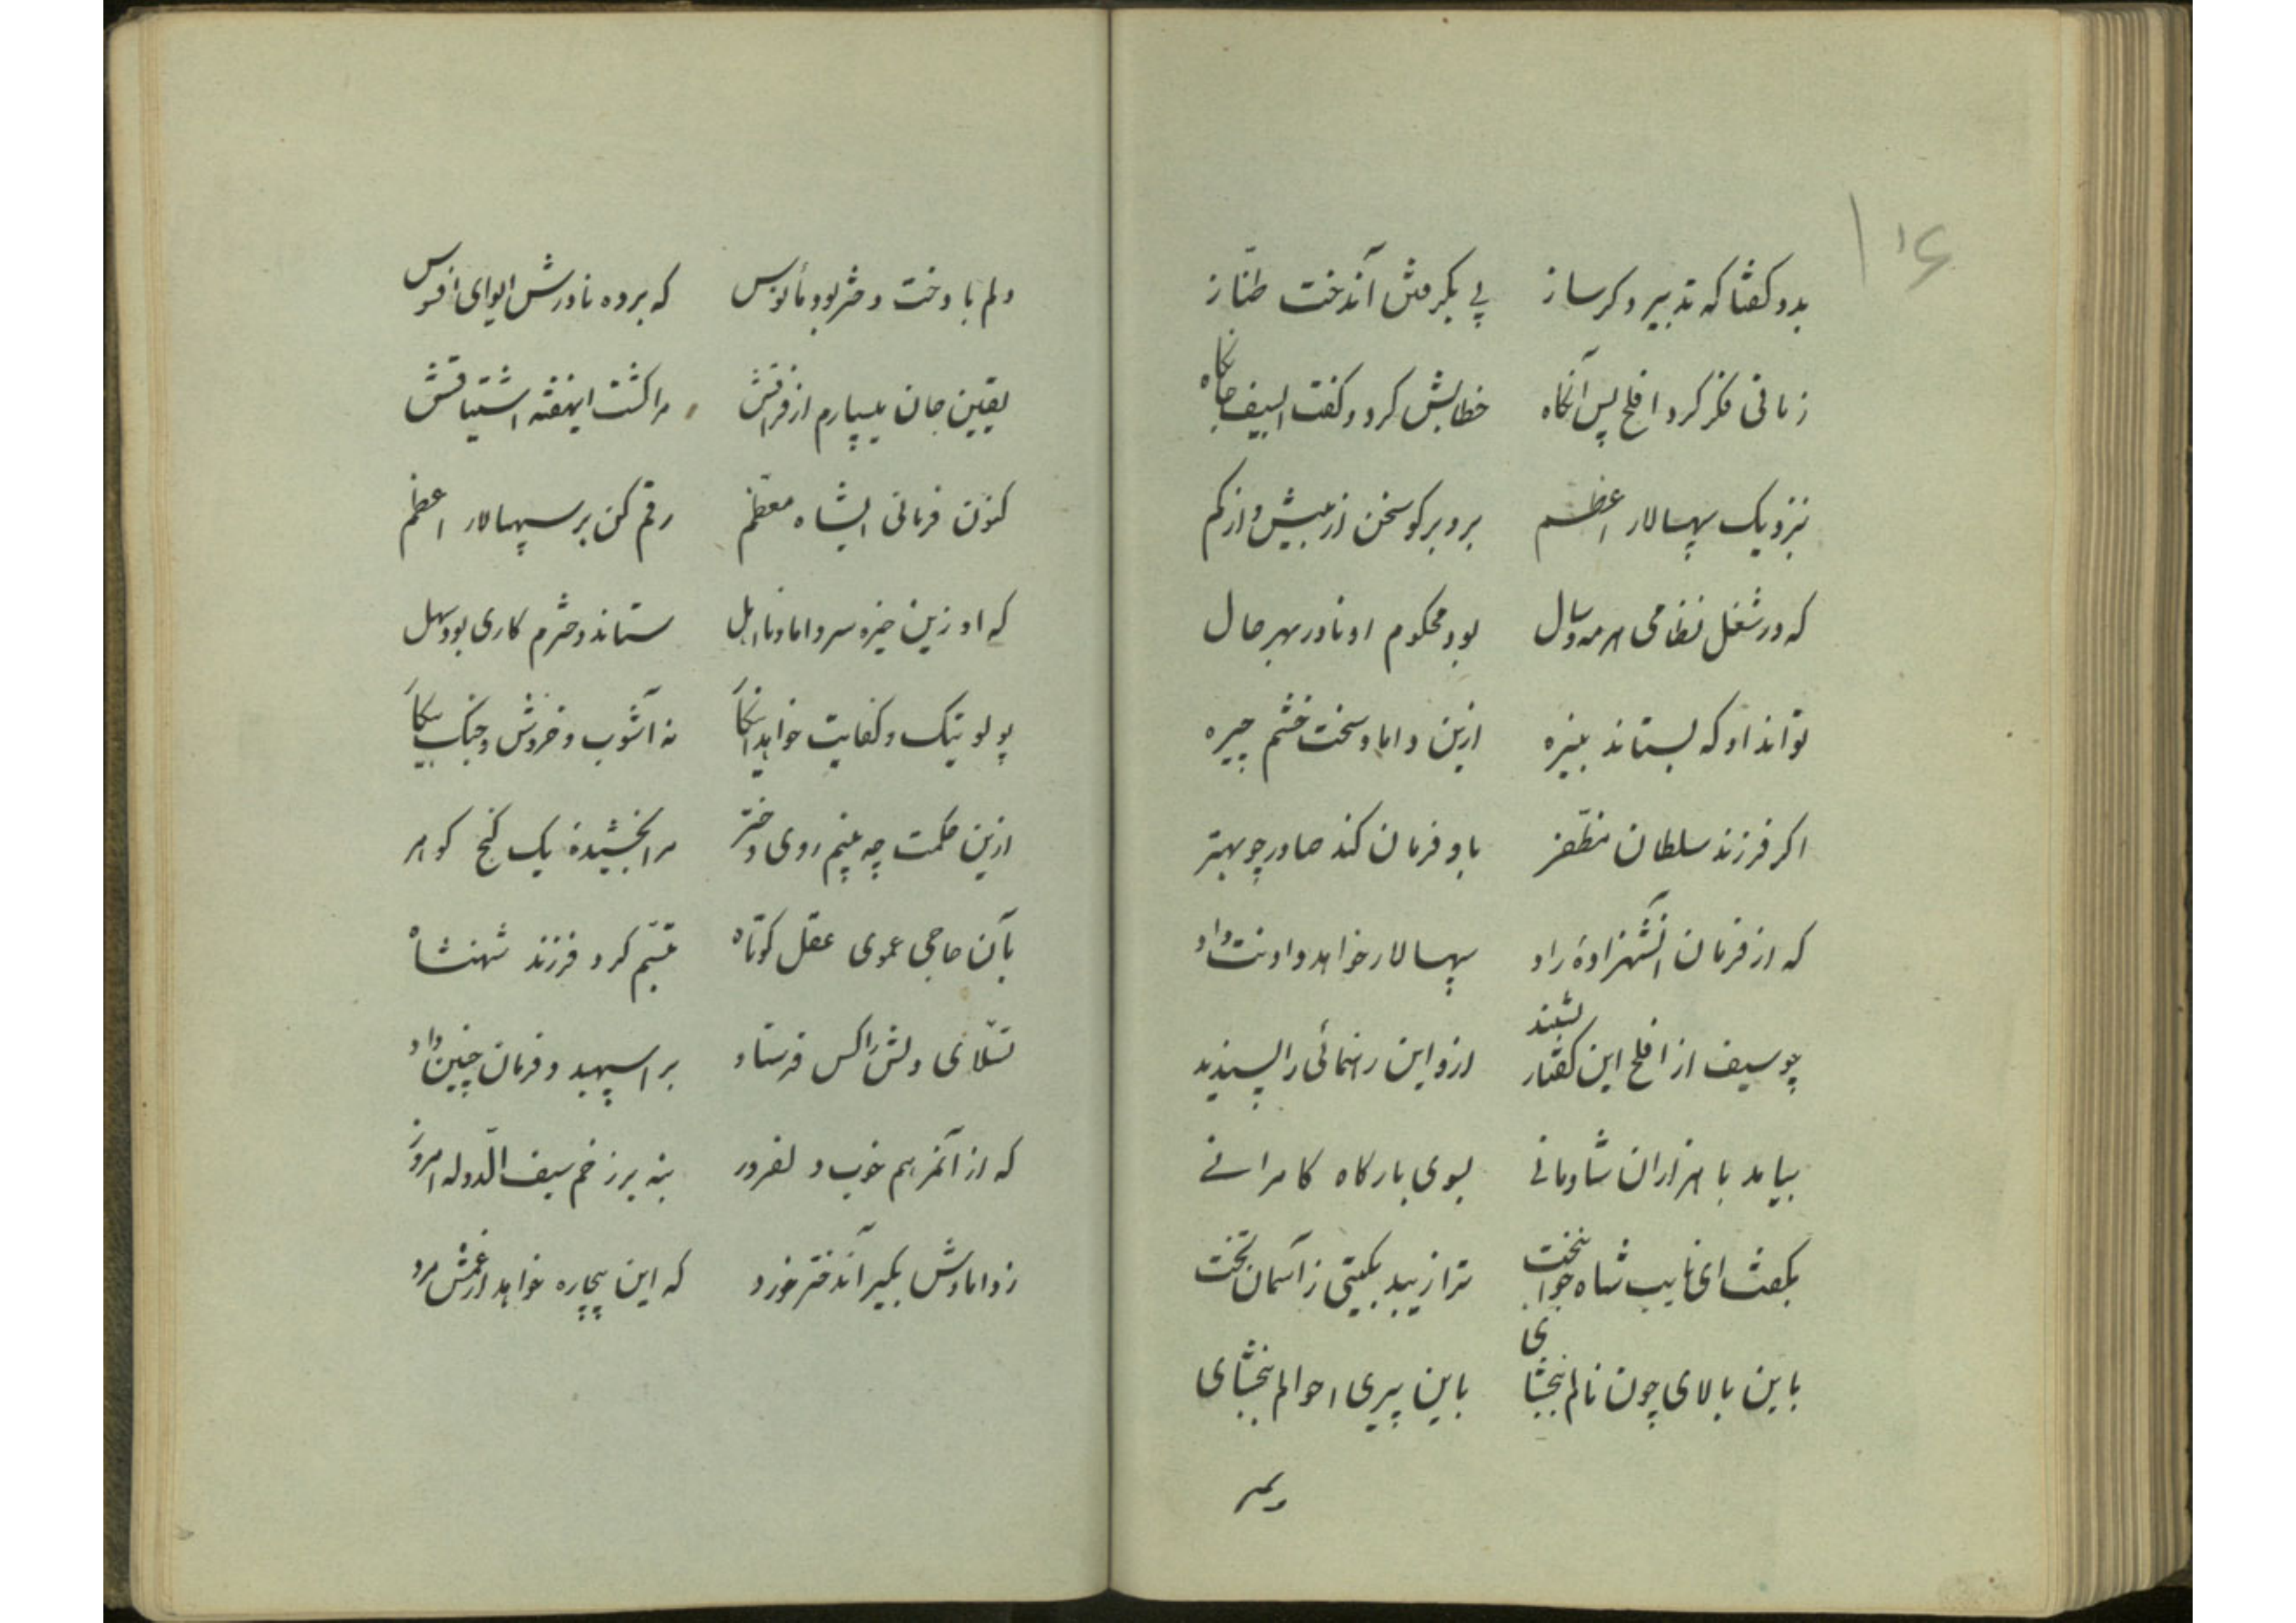 ۱۶
بدو گفتا که تدبیر دگر ساز پی بگرفتن آندخت طناز
زمانی فکر کرد افلح پس آنگاه خطابش کرد و گفت ایسیف جانکاه
بنزدیک سپهسالار اعظم برو برگو سخن از بیش و از کم
که در شغل نظامی هر مه و سال بود محکوم او نادر بهر حال
تواند او که بستاند بنیزه ازین داماد سخت خشم چیره
اگر فرزند سلطان مظفر باو فرمان کند صادر چو بهتر
که از فرمان آنشهزادهٔ راد سپهسالار خواهد داد نت داد
چو سیف از افلح این گفتار بشنید ازو این رهنمائی را پسندید
بیامد با هزاران شادمانی بسوی بارگاه کامرانی
بگفت ای نایب شاه جوانبخت ترا زیبد بگیتی ز آسمان تخت
باین بالای چون نالم ببخشای باین پیری احوالم ببخشای
دلم با دخت دختر بود مأنوس که برده نادرش ایوای افسوس
یقین جان میسپارم از فراقش مرا کشت اینهفته اشتیاقش
کنون فرمانی ایشاه معظم رقم کن بر سپهسالار اعظم
که او زین خیره سر داماد نااهل ستاند دخترم کاری بود سهل
پولوتیک و کفایت خواهد اینکار نه آشوب و خروش و جنگ و پیکار
ازین حکمت چه بینم روی دختر مرا بخشیدهٔ یک گنج گوهر
بآن حاجی عموی عقل کوتاه تبسم کرد فرزند شهنشاه
تسلای دلش را کس فرستاد بر اسپهبد و فرمان چنین داد
که از آنمرهم خوب دلفروز بنه بر زخم سیف الدوله امروز
ز دامادش بگیر آندختر خورد که این بیچاره خواهد از غمش مرد